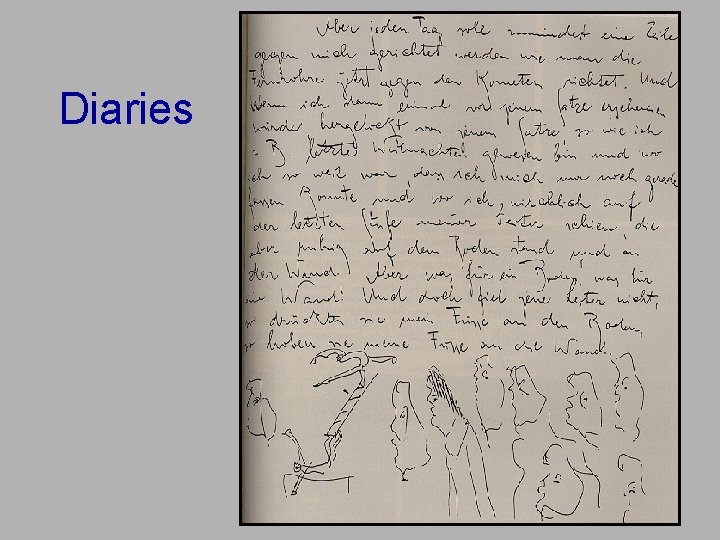 Diaries
Aber jeden Tag soll mindestens eine Zeile
gegen mich gerichtet werden wie man die
Fernrohre jetzt gegen den Kometen richtet. Und
Wenn ich dann einmal vor jenem Satze erscheinen
würde hergelockt von jenem Satze so wie ich
z. B. letzte Weihnachten gewesen bin und wo
ich so weit war, dass ich mich nur noch gerade
fassen konnte und wo ich wirklich auf
der letzten Stufe meiner Leiter schien, die
aber ruhig auf dem Boden stand und an
der Wand. Aber was für ein Boden, was für
eine Wand! Und doch fiel jene Leiter nicht,
so drückten sie meine Füsse an den Boden,
so hoben sie meine Füsse an die Wand.